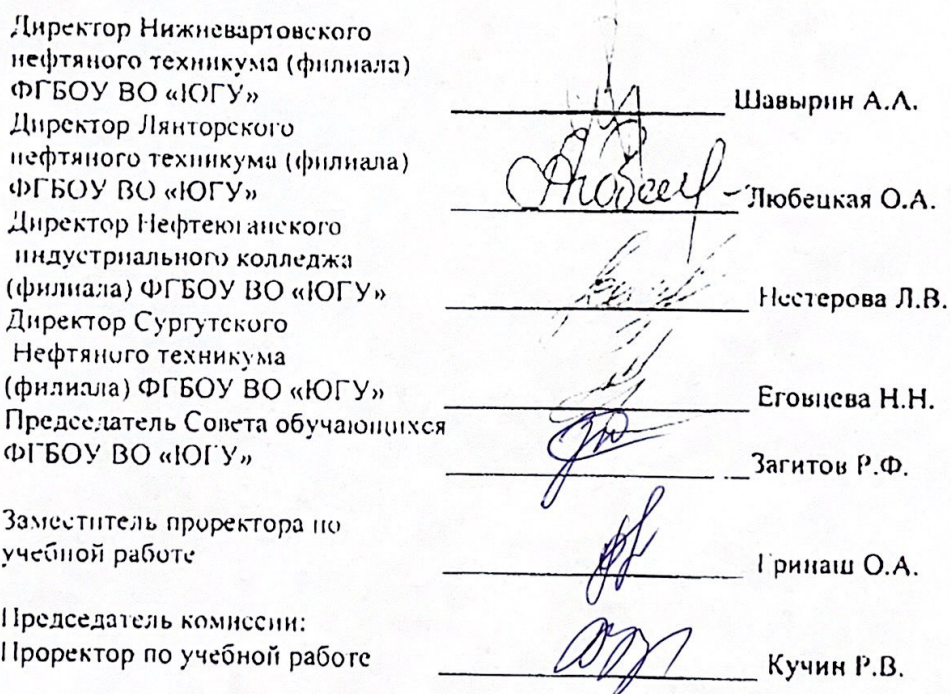 Директор Нижневартовского
нефтяного техникума (филиала)
ФГБОУ ВО «ЮГУ» Шавырин А.А.
Директор Лянторского
нефтяного техникума (филиала)
ФГБОУ ВО «ЮГУ» Любецкая О.А.
Директор Нефтеюганского
индустриального колледжа
(филиала) ФГБОУ ВО «ЮГУ» Нестерова Л.В.
Директор Сургутского
Нефтяного техникума
(филиала) ФГБОУ ВО «ЮГУ» Еговцева Н.Н.
Председатель Совета обучающихся
ФГБОУ ВО «ЮГУ» Загитов Р.Ф.
Заместитель проректора по
учебной работе Гринаш О.А.
Председатель комиссии:
Проректор по учебной работе Кучин Р.В.